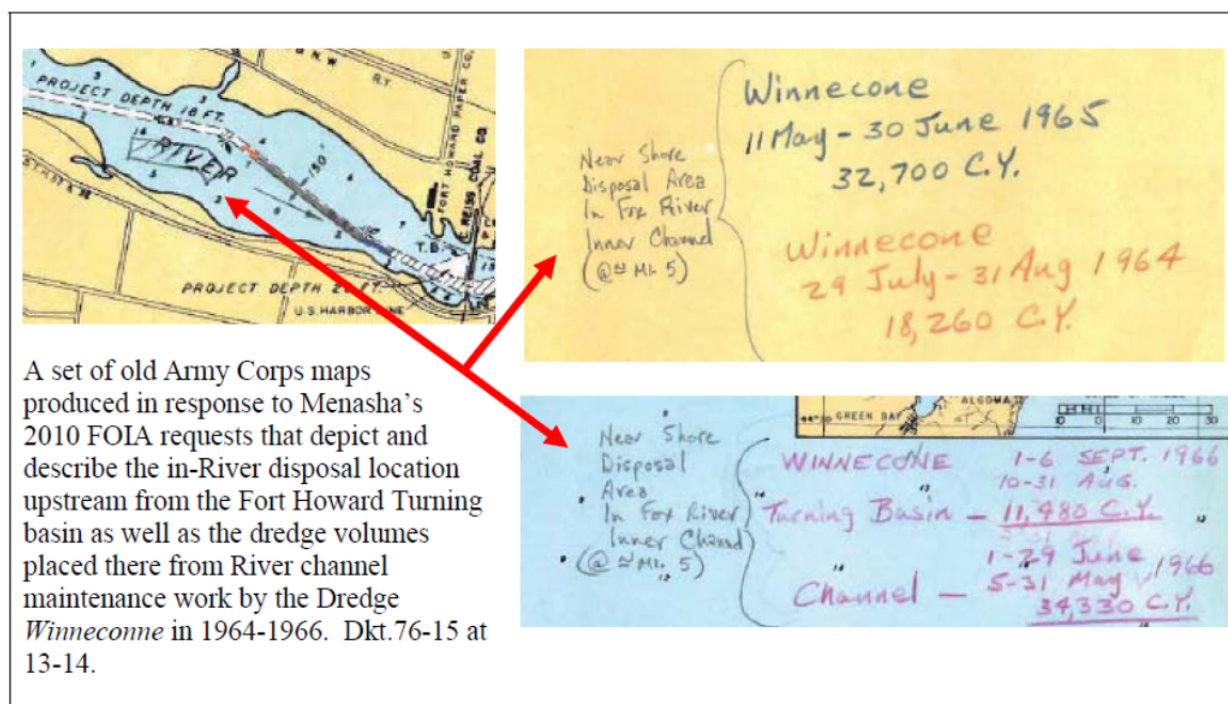 G.N.W. R.Y.
PROJECT DEPTH 18 FT.
RIVER
150
FORT HOWARD PAPER CO.
C. REISS COAL CO.
T.B.
5TH ST & SE
PROJECT DEPTH 2 FT.
U.S. HARBOR LINE
A set of old Army Corps maps
produced in response to Menasha's
2010 FOIA requests that depict and
describe the in-River disposal location
upstream from the Fort Howard Turning
basin as well as the dredge volumes
placed there from River channel
maintenance work by the Dredge
Winneconne in 1964-1966. Dkt.76-15 at
13-14.
Near Shore
Disposal Area
In Fox River
Inner Channel
(@≈ MI. 5)
Winnecone
11 May - 30 June 1965
32,700 C.Y.
Winnecone
29 July - 31 Aug 1964
18,260 C.Y.
ALGOMA
GREEN BAY
0 10 20 30
Near Shore
Disposal
Area
In Fox River
Inner Channel
(@ ≈ MI. 5)
WINNECONE 1-6 SEPT. 1966
10-31 AUG.
Turning Basin - 11,980 C.Y.
1-29 June
5-31 May, 1966
Channel - 34,330 C.Y.